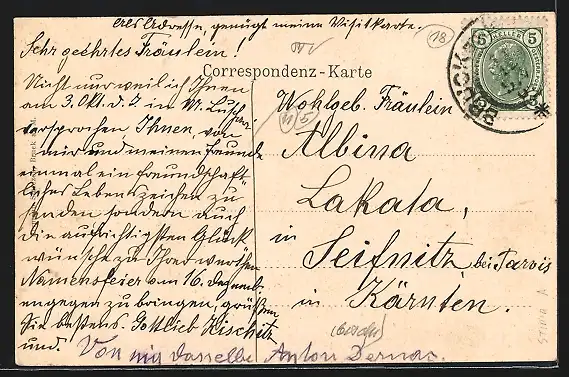 Als Adresse, genügt meine Visitkarte.
Sehr geehrtes Fräulein!
Correspondenz-Karte
Nicht nur weil ich Ihnen
am 3. Okt. d. J. in M. Luschari
versprochen Ihnen, von
mir und meinen Freunde
einmal ein freundschaft-
liches Lebenszeichen zu
senden sondern auch
die aufrichtigsten Glück
wünsche zu Ihrer werthen
Namensfeier am 16. Dezemb.
entgegen zu bringen, grüßen
Sie bestens. Gottlieb Zischitz
und.
Von mir dasselbe Anton
Wohlgeb. Fräulein
Albina
Lakata,
in
Seifnitz bei Tarvis
in Kärnten.
18
5 HELLER 5
BRUCK